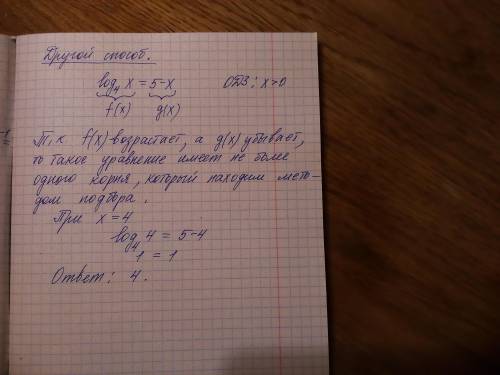 Другой способ.
log₄ x = 5-x ОДЗ: x>0
f(x) g(x)
Т.к f(x) возрастает, а g(x) убывает,
то такое уравнение имеет не более
одного корня, который находим мето-
дом подбора.
При x=4
log₄ 4 = 5-4
1 = 1
Ответ: 4.